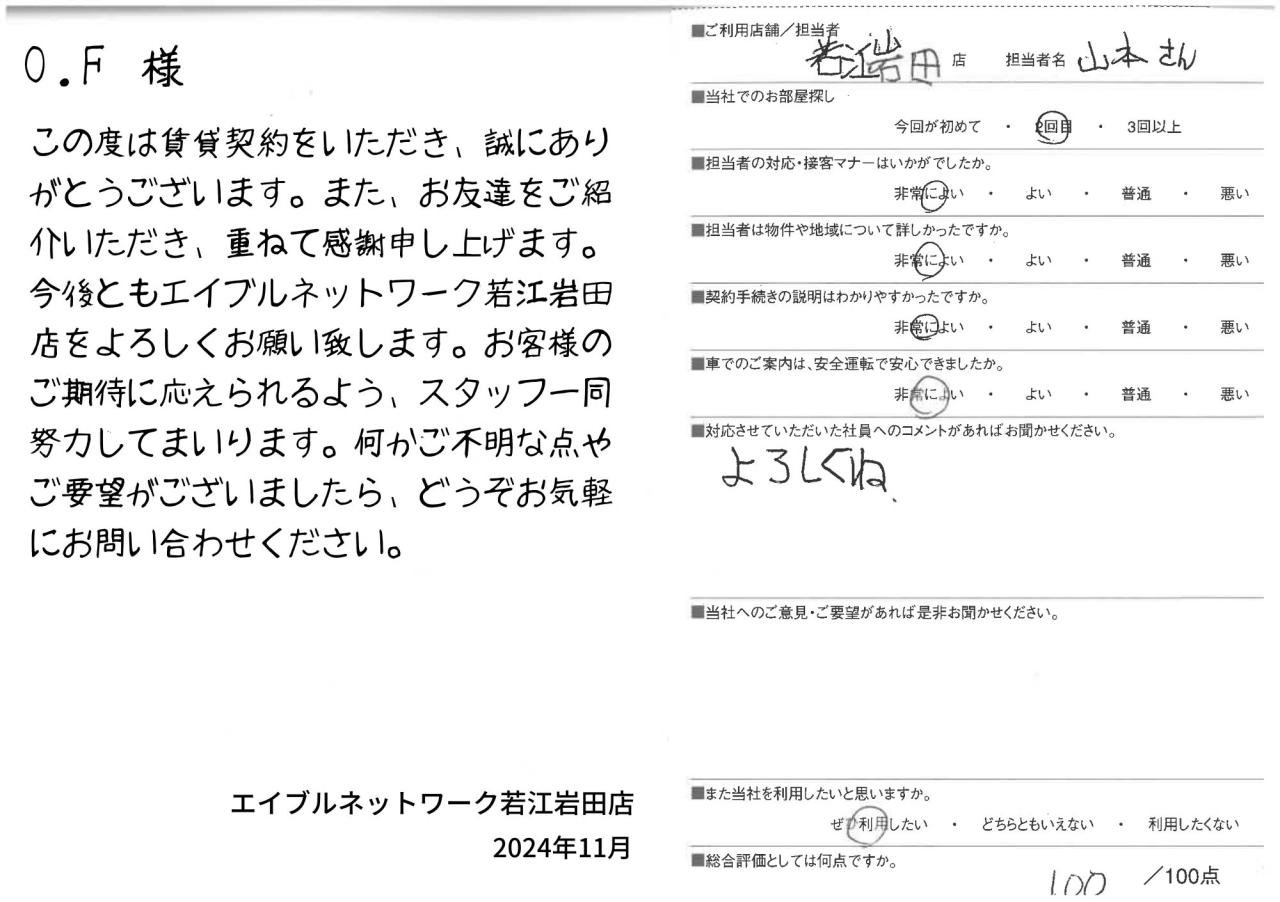 O.F 様
この度は賃貸契約をいただき、誠にあり
がとうございます。また、お友達をご紹
介いただき、重ねて感謝申し上げます。
今後ともエイブルネットワーク若江岩田
店をよろしくお願い致します。お客様の
ご期待に応えられるよう、スタッフ一同
努力してまいります。何かご不明な点や
ご要望がございましたら、どうぞお気軽
にお問い合わせください。
エイブルネットワーク若江岩田店
2024年11月
■ご利用店舗/担当者
若江岩田 店 担当者名 山本さん
■当社でのお部屋探し
今回が初めて ・ 2回目 ・ 3回以上
■担当者の対応・接客マナーはいかがでしたか。
非常によい ・ よい ・ 普通 ・ 悪い
■担当者は物件や地域について詳しかったですか。
非常によい ・ よい ・ 普通 ・ 悪い
■契約手続きの説明はわかりやすかったですか。
非常によい ・ よい ・ 普通 ・ 悪い
■車でのご案内は、安全運転で安心できましたか。
非常によい ・ よい ・ 普通 ・ 悪い
■対応させていただいた社員へのコメントがあればお聞かせください。
よろしくね、
■当社へのご意見・ご要望があれば是非お聞かせください。
■また当社を利用したいと思いますか。
ぜひ利用したい ・ どちらともいえない ・ 利用したくない
■総合評価としては何点ですか。
100 /100点